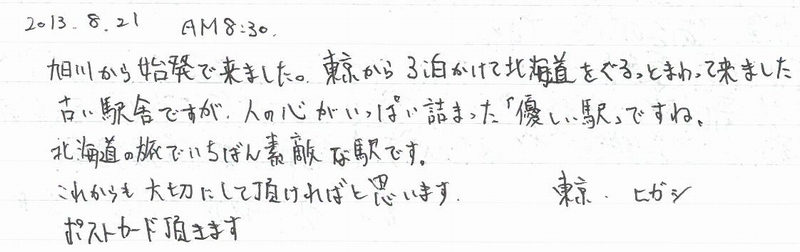 2013.8.21 AM8:30.
旭川から始発で来ました。東京から3泊かけて北海道をぐるっとまわって来ました
古い駅舎ですが、人の心がいっぱい詰まった「優しい駅」ですね。
北海道の旅でいちばん素敵な駅です。
これからも大切にして頂ければと思います. 東京. ヒガシ
ポストカード頂きます